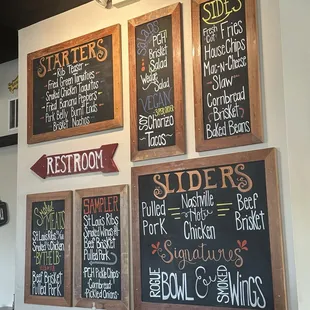 STARTERS
Rib Teaser
Fried Green Tomatoes
Smoked Chicken
Fried Banana Peppers
Pork Belly Burnt Ends
Brisket Nachos
SALADS
PCH
Brisket
Salad
Wedge
Salad
VEGAN
Chorizo
Tacos
SIDES
Fresh Cut Fries
House Chips
Mac-n-Cheese
Slaw
Cornbread
Brisket
Baked Beans
RESTROOM
St. Louis Ribs
Smoked Wings
Brisket
Pulled Pork
BY THE LB
SAMPLER
St. Louis Ribs
Smoked Wings
Beef Brisket
Pulled Pork
PCH Chips
Cornbread
Pickled Onions
SLIDERS
Pulled
Pork
Nashville
Hot
Chicken
Beef
Brisket
Signatures
ROGUE
BOWL
&
SMOKED
WINGS